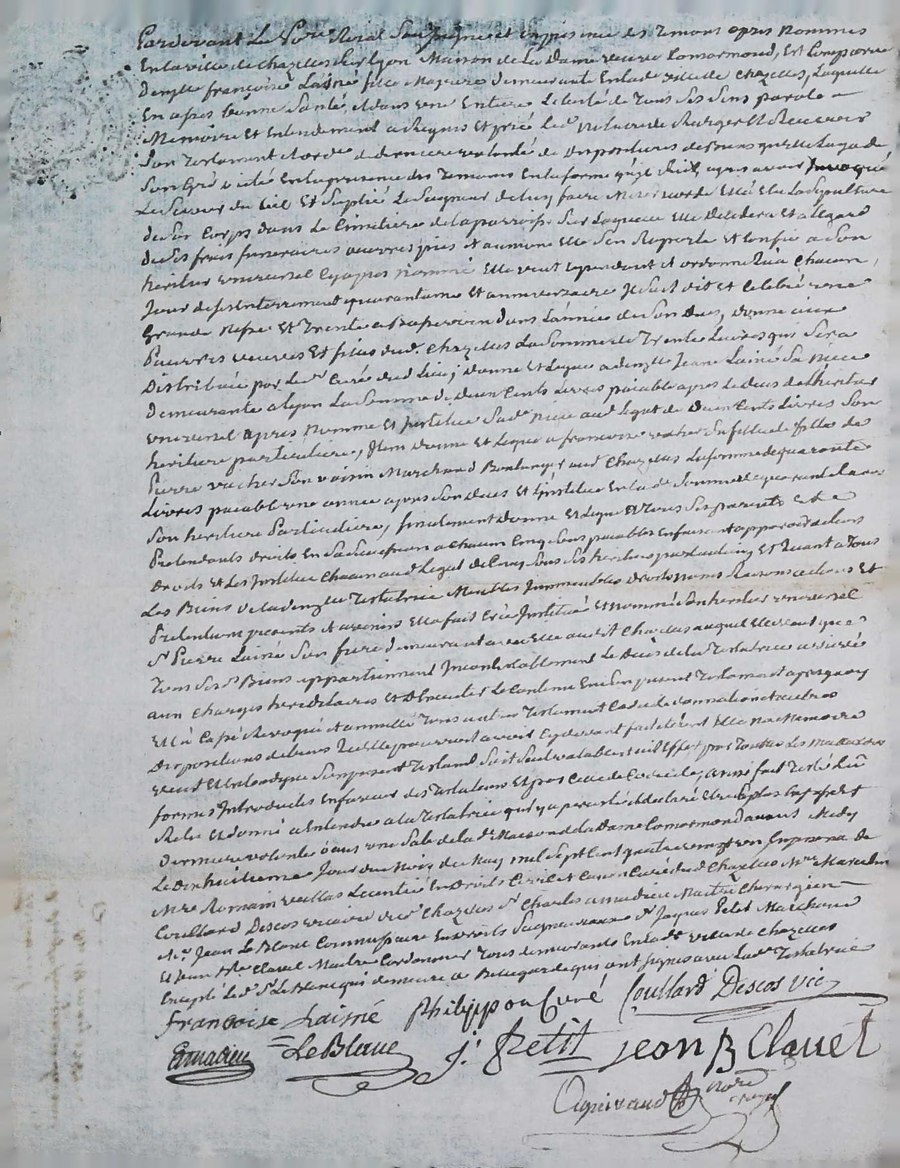 Pardevant Le No.re Royal Soussigné et en presence des Temoins apres Nommés
En la ville de Chazelles sur Lyon Maison de la Dame veuve Comarmond, Est Comparue
Demlle françoise Lainé fille Majeure Demeurant En lad. ville de Chazelles, Laquelle
En apres bonne Santé, et dans une Entiere Liberté de Tous Ses Sens parole
Memoire Et Entendement a Requis Et prié Led. Notaire de Rediger Et Recevoir
Son Testament et ord.e de derniere volonté de dispositions de biens quelle a
Son Gré dicté En la presence des Temoins En la forme qui Suit, apres avoir Invoqué
Le Sauveur du Ciel Et Suplié Le Seigneur de luy faire Misericorde Elle Elu La Sepulture
de Son Corps Dans Le Cimetiere de la parroisse Sur Laquelle Elle Decedera Et a l'Egard
de Ses frais funeraires œuvres pies et aumone Elle S'en Raporte Et Confie a Son
heritier universel Cy apres nommé Elle veut cependant et ordonne qu'a Chacun
Jour de Son Enterrement quarantaine Et anniverssaire Il Soit dit et Celebré une
Grande Messe Et Trente a Basse voix dans L'année de Son Deces, donne aux
Pauvres veuves Et filles dud. Chazelles La Somme de Trente Livres qui Sera
Distribuée par Le Sr Curé dud. Lieu; donne et Legue a demlle Jeanne Lainé Sa Niece
Demeurante a Lyon La Somme de deux Cents Livres paiable apres le deces de l'heritier
universel apres Nommé Et Institue Sad. Niece aud. Legat de Deux Cents Livres Son
heritiere particuliere, Item donne Et Legue a francoise vacher Enfille de fille de
Pierre vacher Son voisin Marchand Boulanger aud. Chazelles La somme de quarante
Livres paiable une année apres Son deces Et L'institue En lad. Somme de quarante Livres
Son heritiere Particuliere, finalement donne Et Legue a Tous Ses parents et
Pretendants droits En Sa Succession a Chacun Cinq Sous paiables En faisant apparoir de leurs
Droits et Les Institue Chacun aud. Legat de Cinq Sous Ses heritiers particuliers Et Quant a Tous
Les Biens de lad. demlle Testatrice Meubles Immeubles Droits noms Raisons actions Et
Pretentions presents et avenir Elle fait Créé Institué Et Nommé Son heritier universel
Sr Pierre Lainé Son frere demeurant avec Elle aud. Chazelles auquel Elle veut que
Tous Sesd. Biens appartiennent Incontestablement Le Deces de la Testatrice arrivé
aux Charges hereditaires Et D'Executer Le Contenu En Son present Testament apres quoy
Elle a Cassé Revoqué et annullé Tous autres Testament Codicile donnation et autres
Dispositions de biens Qu'elle pourroit avoir Cy devant fait dont Elle n'a Memoire
veut Et Entend que Son present Testament Soit Seul valable
formes Introduites En faveur des Testateurs Et par Celle de Codicile, ainsi fait Testé Lû
Relu Et donné a Entendre a la Testatrice qui y a persisté declaré Etre
Derniere volonté dans une Sale de lad. Maison de la Dame Comarmond avant Midy
Le dix huitieme Jour du Mois de May mil Sept Cent quatre vingt un En presence de
Mre Romain Licentié En Droits Civil et Canon Curé dud. Chazelles Mre Marcelin
Couillard Descos vicaire dud. Chazelles Sr Charles amadieu Maitre Chirurgien
Sr Jean Le Blanc Commissaire En droits Seigneuriaux Sr Jaques Petit Marchand
Et Jean Bte Clavel Maitre Cordonnier Tous demeurants En lad. ville de Chazelles
Excepté Led. Sr Le Blanc qui demeure a qui ont Signés avec Lad. Testatrice
francoise Lainé Philippon Curé Coullard Descos vic
amadieu LeBlanc J. Petit jean B Clavet
nore royal